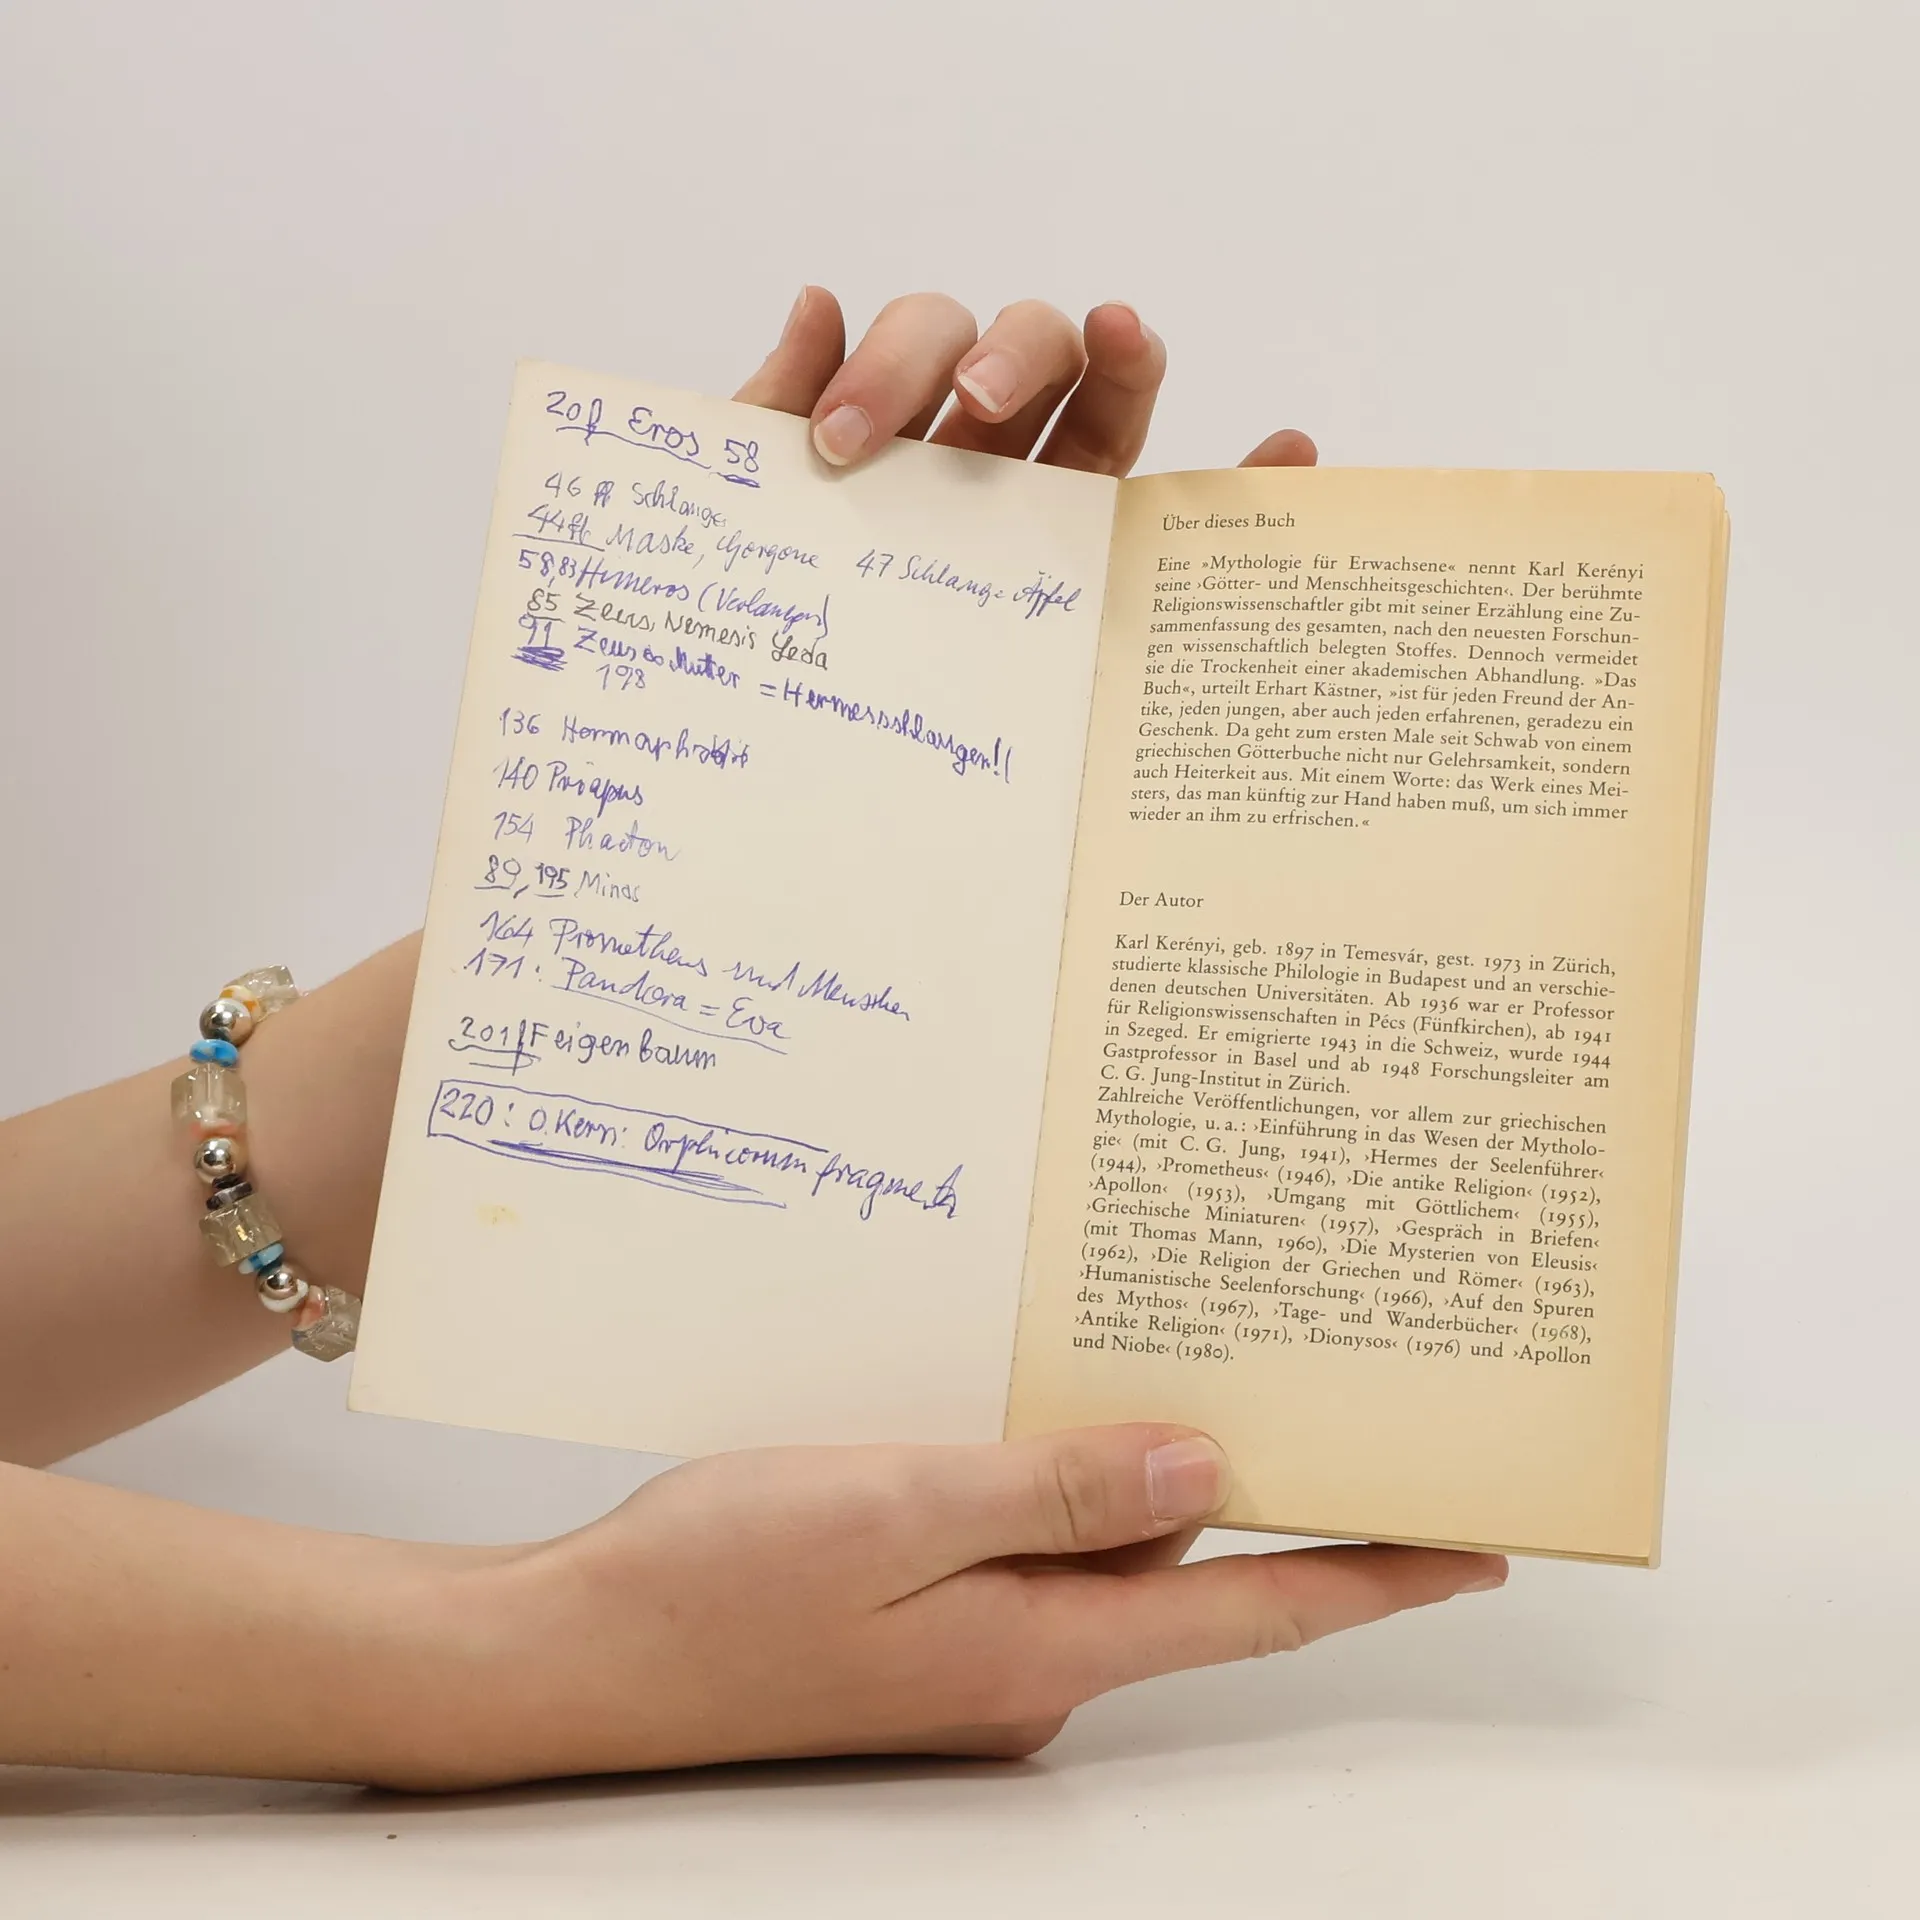 20f Eros 58
46 ff Schlange
44ff Maske, Gorgone 47 Schlange Äpfel
58,83 Himeros (Verlangen)
85 Zeus, Nemesis Leda
91 Zeus Mutter = Hermesschlangen!
198
136 Hermaphrodit
140 Priapus
154 Phaeton
89, 195 Minos
164 Prometheus und Menschen
171: Pandora = Eva
201f Feigenbaum
220: O. Kern: Orphicorum fragmenta
Über dieses Buch
Eine »Mythologie für Erwachsene« nennt Karl Kerényi
seine ›Götter- und Menschheitsgeschichten‹. Der berühmte
Religionswissenschaftler gibt mit seiner Erzählung eine Zu-
sammenfassung des gesamten, nach den neuesten Forschun-
gen wissenschaftlich belegten Stoffes. Dennoch vermeidet
sie die Trockenheit einer akademischen Abhandlung. »Das
Buch«, urteilt Erhart Kästner, »ist für jeden Freund der An-
tike, jeden jungen, aber auch jeden erfahrenen, geradezu ein
Geschenk. Da geht zum ersten Male seit Schwab von einem
griechischen Götterbuche nicht nur Gelehrsamkeit, sondern
auch Heiterkeit aus. Mit einem Worte: das Werk eines Mei-
sters, das man künftig zur Hand haben muß, um sich immer
wieder an ihm zu erfrischen.«
Der Autor
Karl Kerényi, geb. 1897 in Temesvár, gest. 1973 in Zürich,
studierte klassische Philologie in Budapest und an verschie-
denen deutschen Universitäten. Ab 1936 war er Professor
für Religionswissenschaften in Pécs (Fünfkirchen), ab 1941
in Szeged. Er emigrierte 1943 in die Schweiz, wurde 1944
Gastprofessor in Basel und ab 1948 Forschungsleiter am
C. G. Jung-Institut in Zürich.
Zahlreiche Veröffentlichungen, vor allem zur griechischen
Mythologie, u. a.: ›Einführung in das Wesen der Mytholo-
gie‹ (mit C. G. Jung, 1941), ›Hermes der Seelenführer‹
(1944), ›Prometheus‹ (1946), ›Die antike Religion‹ (1952),
›Apollon‹ (1953), ›Umgang mit Göttlichem‹ (1955),
›Griechische Miniaturen‹ (1957), ›Gespräch in Briefen‹
(mit Thomas Mann, 1960), ›Die Mysterien von Eleusis‹
(1962), ›Die Religion der Griechen und Römer‹ (1963),
›Humanistische Seelenforschung‹ (1966), ›Auf den Spuren
des Mythos‹ (1967), ›Tage- und Wanderbücher‹ (1968),
›Antike Religion‹ (1971), ›Dionysos‹ (1976) und ›Apollon
und Niobe‹ (1980).